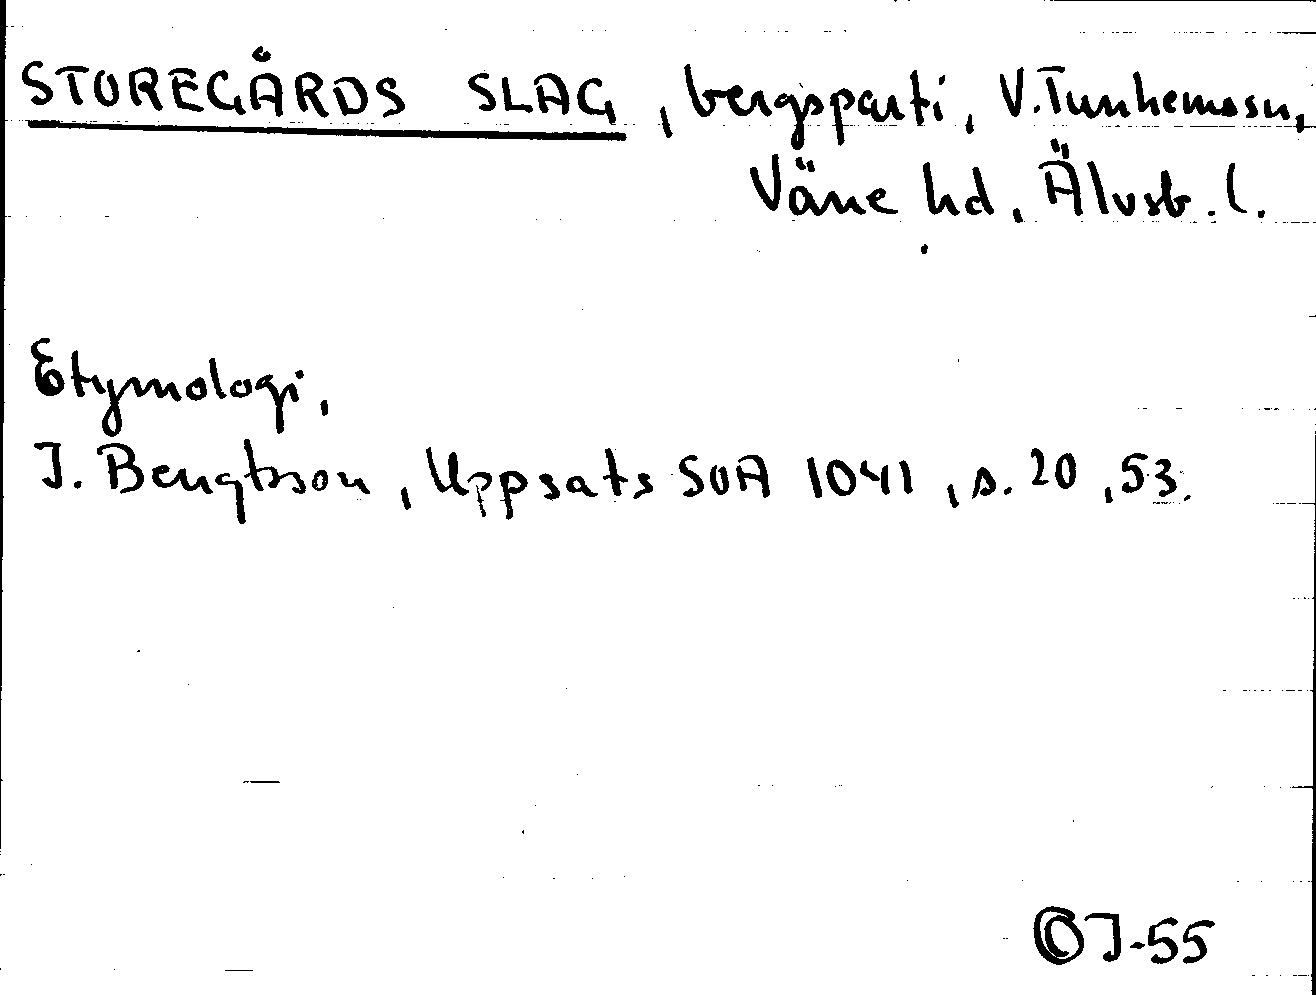 STOREGÅRDS SLAG, bergsparti, V. Tunhemssn,
Väne hd, Älvsb. l.
Etymologi,
I. Bengtsson, Uppsats SOA 1041, s. 20, 53.
OJ-55